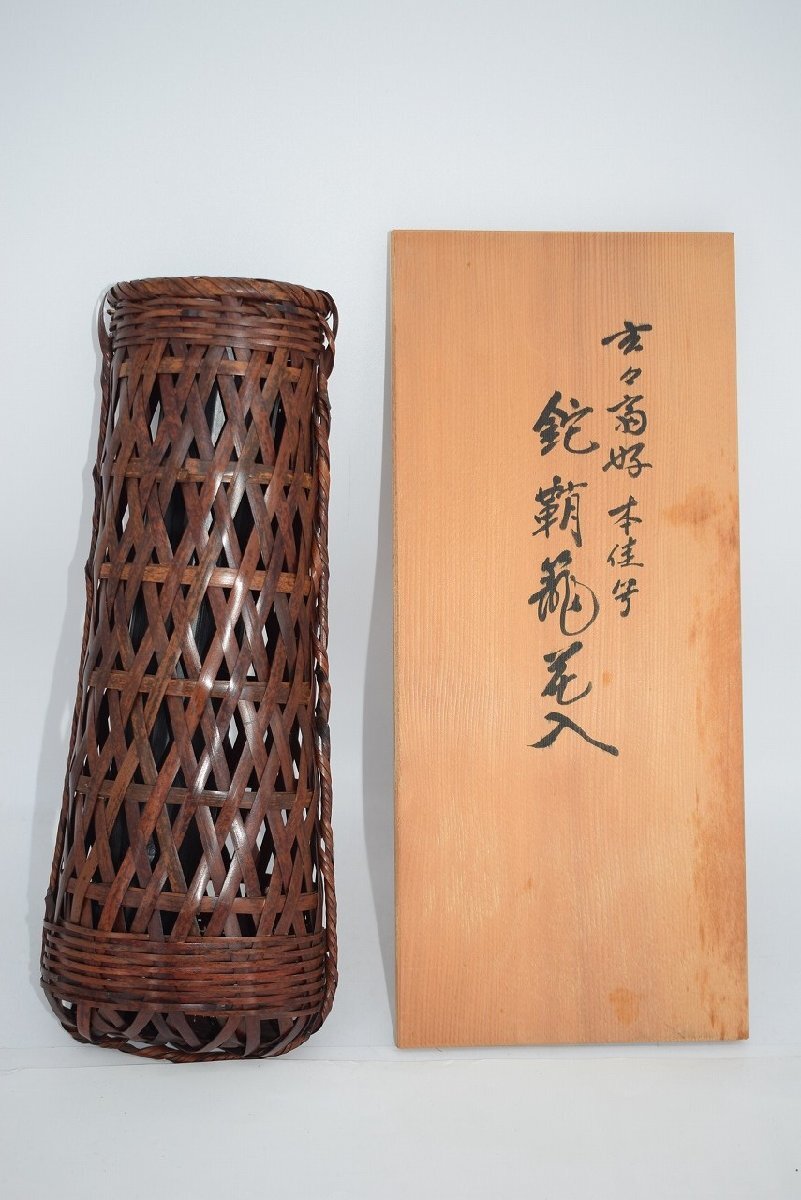 玄々斎好 本佳
鉈鞘籠花入